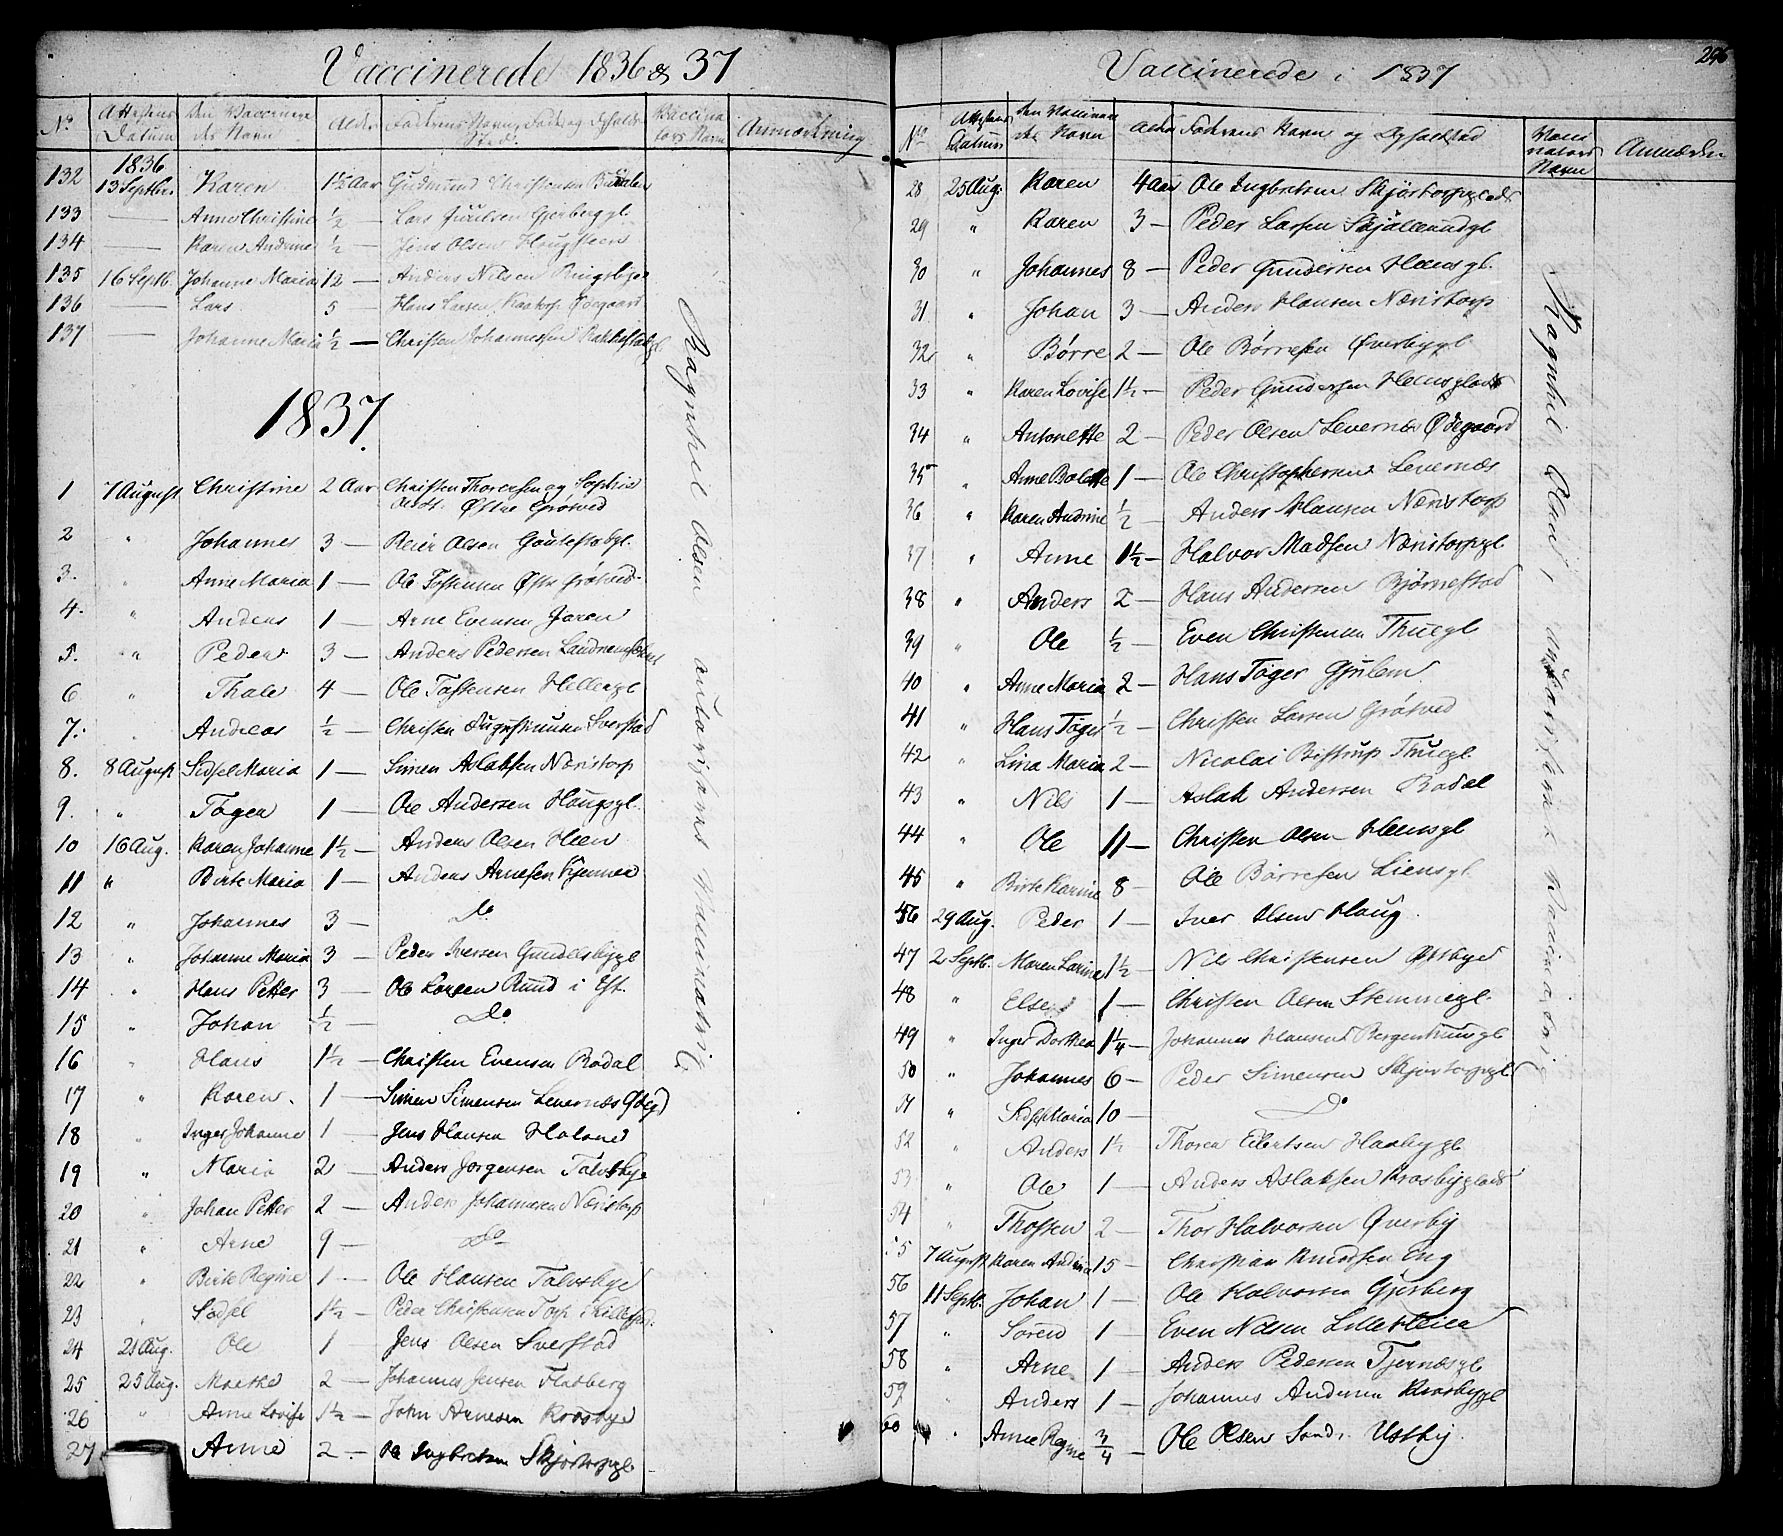 Vaccinerede 1836 & 37
No Attestens Datum Den Vaccinere des Navn Alder Faderens Navn Vaccina tors Navn Anmærkning
1836
132 13 Septbr. Karen 1½ Aar Gudmund Christensen
133 — Anne Christine ½ — Lars Juulsen Gjerberggl.
134 — Karen Andrine ½ — Jens Olsen Haugsteen
135 16 Septb. Johanne Maria 12 — Anders Nilsen Ringsbye
136 — Lars 5 Hans Larsen Ødegaard
137 — Johanne Maria ½ — Christen Johannessen
1837.
1 7 August Christine 2 Aar Christen Thoresen og Sophie
Østre Grøtved
2 " Johannes 3 — Reier Olsen Goutestadgl.
3. " Anne Maria 1 — Ole Tostensen Østre Grøtved
4. " Anders 1 — Arne Evensen Jaren
5. " Peder 3 — Anders Pedersen
6 " Thale 4 — Ole Tostensen Hellergl
7. " Andreas ½ — Christen Augustinusen Sverstad
8. 8 August Sidsel Maria 1 — Simen Aslaksen Næristorp
9. " Tøger 1 — Ole Andersen Haugsgl.
10 16 Aug. Karen Johanne 1½ — Anders Olsen Heen
11 " Birte Maria 1 — Anders Arnesen Kjenner
12 " Johannes 3 — Do
13 " Johanne Maria 3 — Peder Iversen Gundersbygl
14 " Hans Petter 3 — Ole Larsen Ruud i Est.
15 " Johan ½ — Do
16 " Hans 1½ — Christen Evensen Bødal
17 " Karen. 1 — Simen Simensen Levernæs
18 " Inger Johanne 1 Jens Hansen
19 " Maria 2 — Anders Jørgensen Talosbye
20 " Johan Petter 2 — Anders Johannesen Næristorp
21 " Arne 9 — Do
22 " Birte Regine 1 — Ole Hansen Talosbye
23 " Sidsel 1½ — Peder Christensen Torp
24 21 Aug. Ole 1 Jens Olsen Sverstad
25 25 Aug. Marthe 2 — Johannes Jensen Flatberg
26 " Anne Lovise 1½ — John Arnesen Krosbye
27 Anne 2 — Ole Ingbretsen Skjørtorpgl
Ragnhil Olsen autoriseret Vaccinatrice
296
Vaccinerede i 1837
No Attestens Datum Den Vaccinere des Navn Alder Faderens Navn og Opholdsted Vacci nators Navn Anmærkn
28 25 Aug. Karen 4 Aar Ole Ingbretsen
29 " Karen 3 — Peder Larsen Skjøllerudgl
30 " Johannes 8 — Peder Gundersen Heensgl.
31 " Johan 3 — Anders Hansen Næristorp
32 " Børre 2 — Ole Børresen Øverbygl
33 " Karen Lovise 1½ — Peder Gundersen
34 " Antonette 2 — Peder Olsen Levernæs Ødegaard
35 " Anne Bolette 1 — Ole Christophersen Levernæs
36 " Karen Andrine ½ — Anders Hansen Næristorp
37 " Anne 1½ — Halvor Madsen Næristorpgl
38 " Anders 2 — Hans Andersen Bjørnestad
39 " Ole ½ — Even Christensen Thuegl
40 " Anne Maria 2 — Hans Tøger Gjulem
41 " Hans Tøger ½ — Christen Larsen Grøtved
42 " Lina Maria 2 — Nicolai Bistrup Thuegl.
43 " Nils 1 — Aslak Andersen Bødal
44 " Ole 11 — Christen Olsen Heensgl
45 " Birte Karine 8 — Ole Børresen Liensgl.
46 29 Aug. Peder 1 — Iver Olsen Haug.
47 2 Septb. Maren Larine 1½ — Nils Christensen Østbye
48 " Else 1 — Christen Olsen Stemmegl.
49 " Inger Dorthea 1¼ — Johannes Hansen
50 " Johannes 6 — Peder Simensen Skjørtorpgl
51 " Sidsel Maria 10 — Do
52 " Anders 1½ Thoren Eilertsen Haabygl
53 " Ole 1 — Anders Aslaksen
54 " Thosten 2 — Thor Halvorsen Øverby
55 7 August Karen Andrina 15 — Christian Knudsen Eng
56 11 Septb. Johan 1 — Ole Halvorsen Gjerberg
57 " Søren 1 — Even Nilsen Lillekleier
58 " Arne 1 — Anders Pedersen Tjernæsgl
59 " Anders 1 — Johannes Andersen Krosbygl
60 " Anne Regine ¾ — Ole Olsen Sand. Ustby
Ragnhil Olsen, autoriseret Vaccinatrice